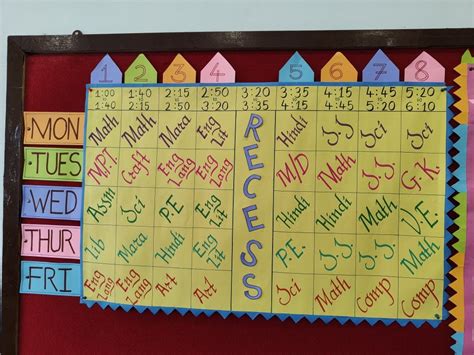 1 2 3 4 5 6 7 8
1:00 1:40 2:15 2:50 3:20 3:35 4:15 4:45 5:20
1:40 2:15 2:50 3:20 3:35 4:15 4:45 5:20 6:10
MON Math Math Mara Eng Lit Hindi S.S Sci Math
TUES M.P.T. Craft Eng Lang Eng Lang M/D Math Sci G.K.
WED Assm Sci P.E Eng Lit Hindi Hindi Math V.E.
THUR Lib Mara Hindi Eng Lit P.E. S.S S.S Math
FRI Eng Lang Eng Lang Art Art Sci Math Comp Comp
RECESS